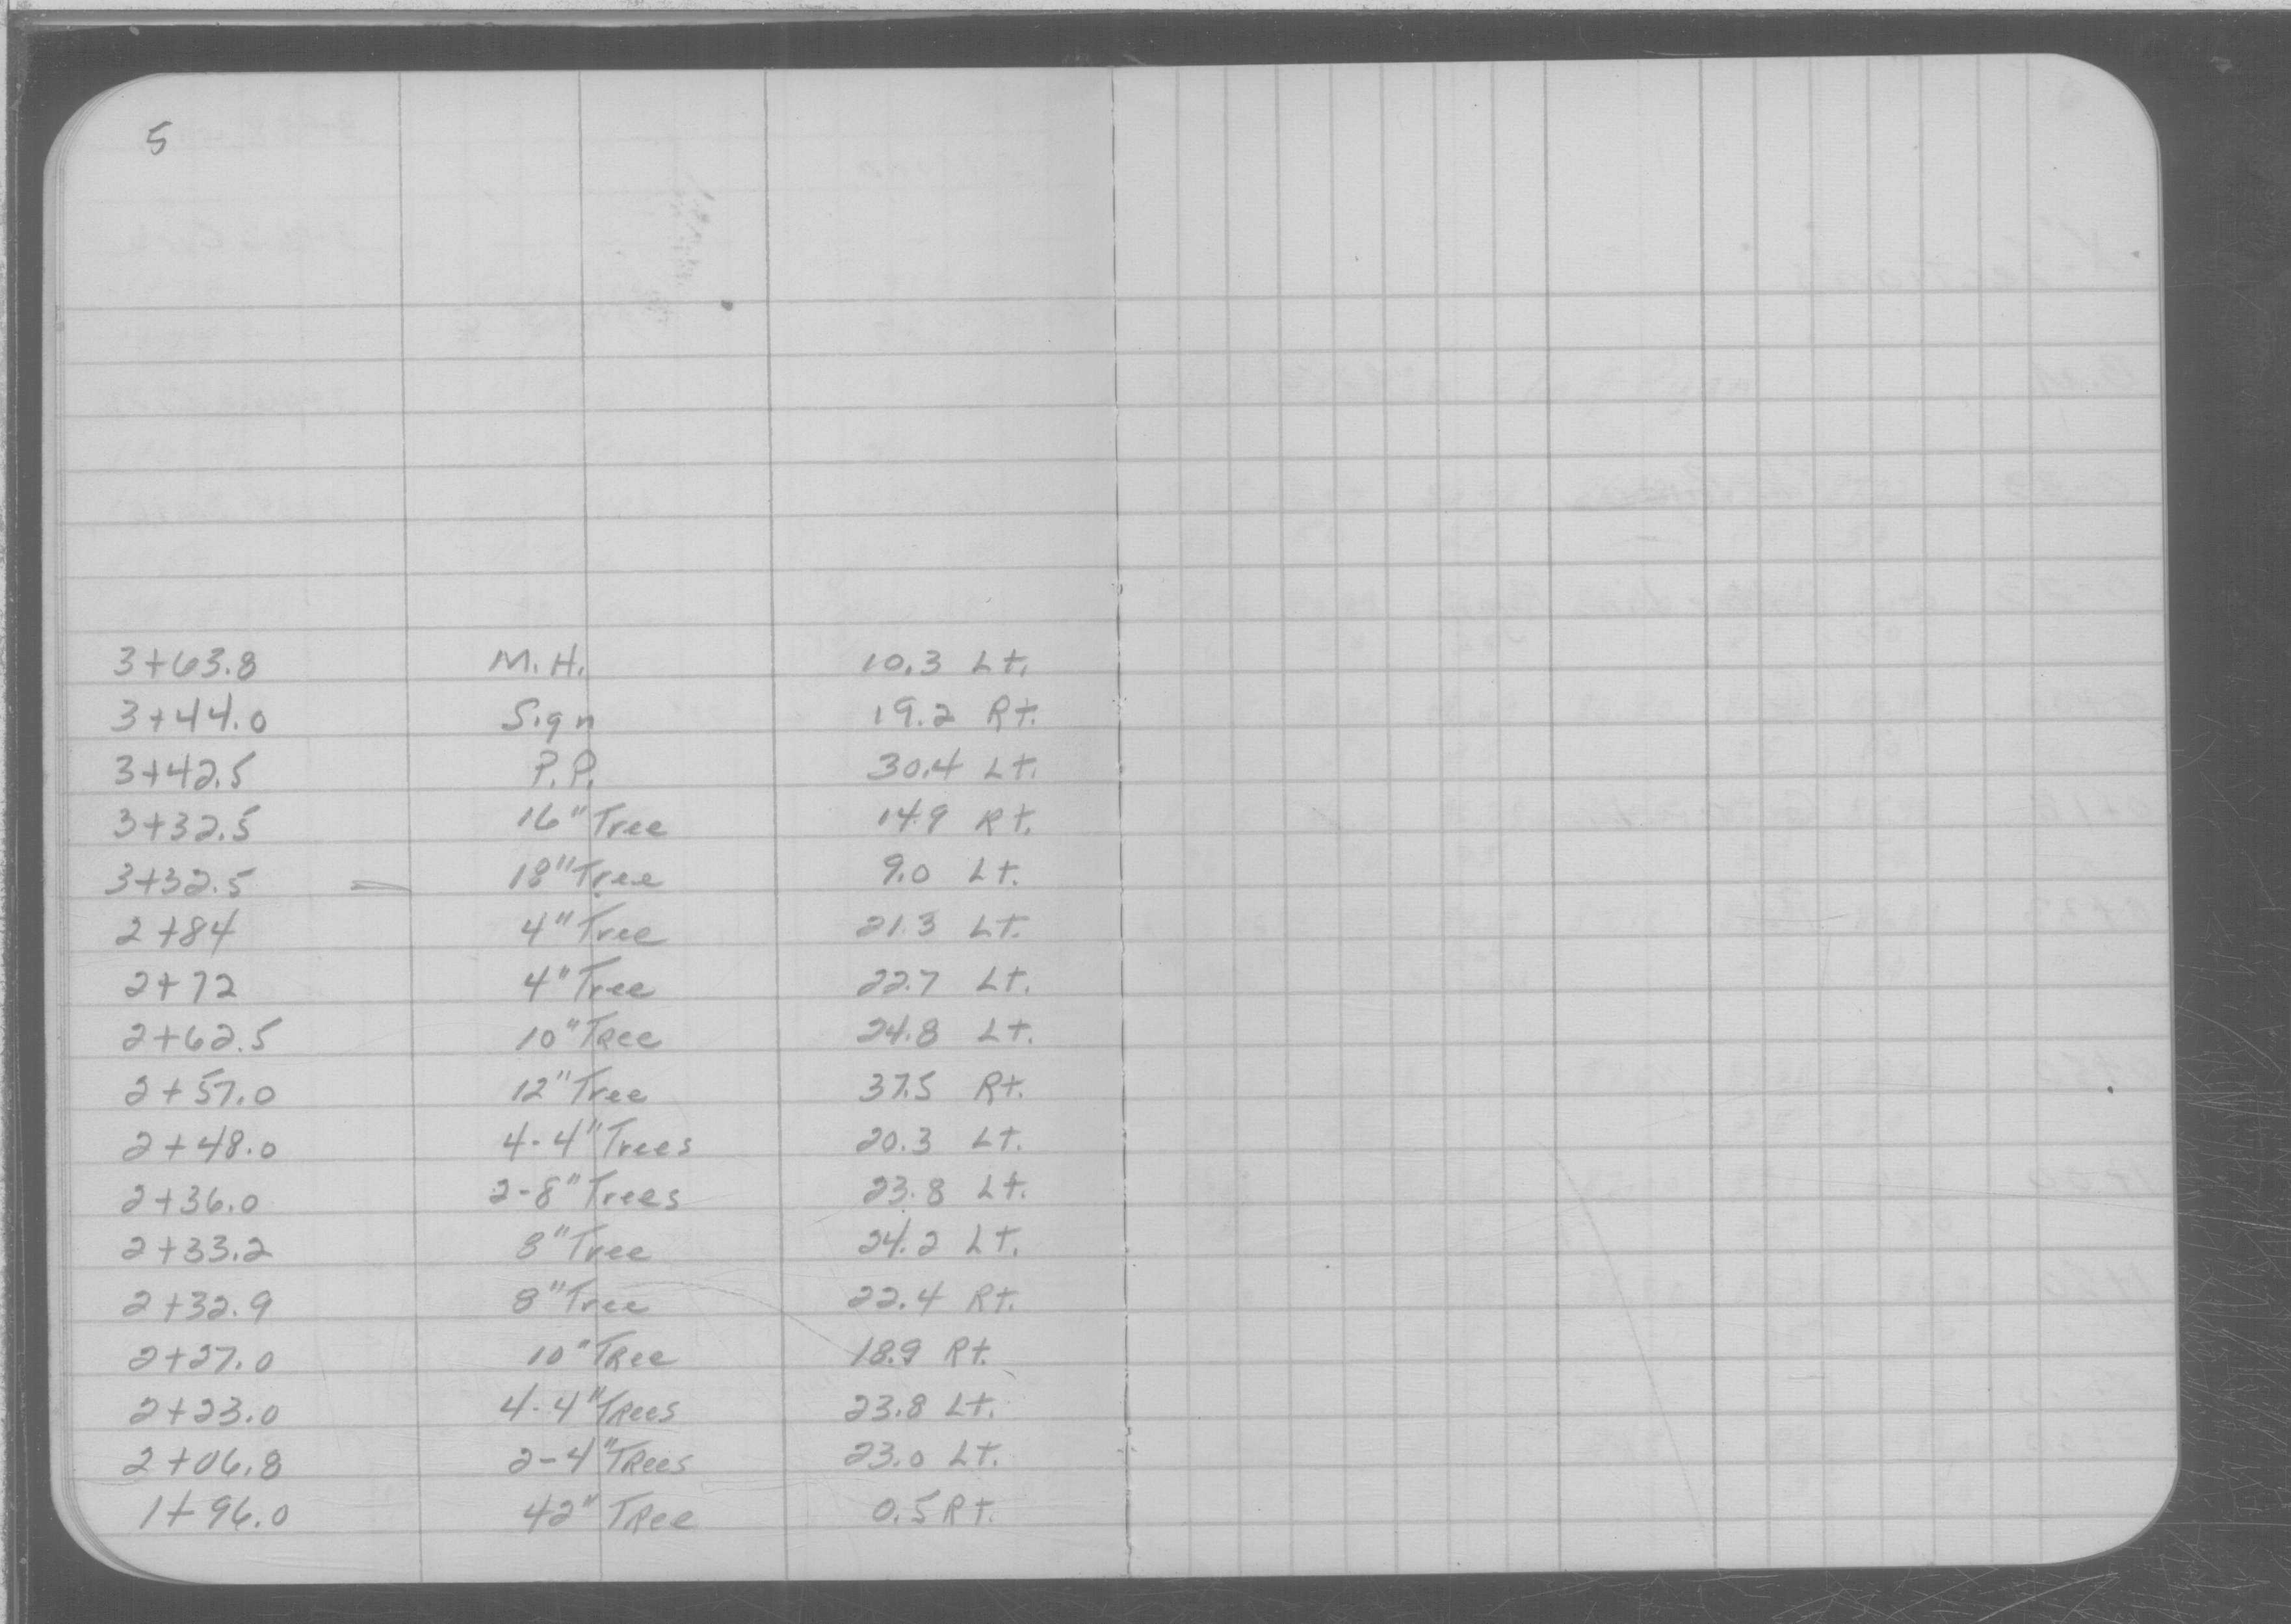 5
3+63.8 M.H. 10.3 Lt.
3+44.0 Sign 19.2 Rt.
3+42.5 P.P. 30.4 Lt.
3+32.5 16" Tree 14.9 Rt.
3+32.5 18" Tree 9.0 Lt.
2+84 4" Tree 21.3 Lt.
2+72 4" Tree 22.7 Lt.
2+62.5 10" Tree 24.8 Lt.
2+57.0 12" Tree 37.5 Rt.
2+48.0 4-4" Trees 20.3 Lt.
2+36.0 2-8" Trees 23.8 Lt.
2+33.2 8" Tree 24.2 Lt.
2+32.9 8" Tree 22.4 Rt.
2+27.0 10" Tree 18.9 Rt.
2+23.0 4-4" Trees 23.8 Lt.
2+06.8 2-4" Trees 23.0 Lt.
1+96.0 42" Tree 0.5 Rt.